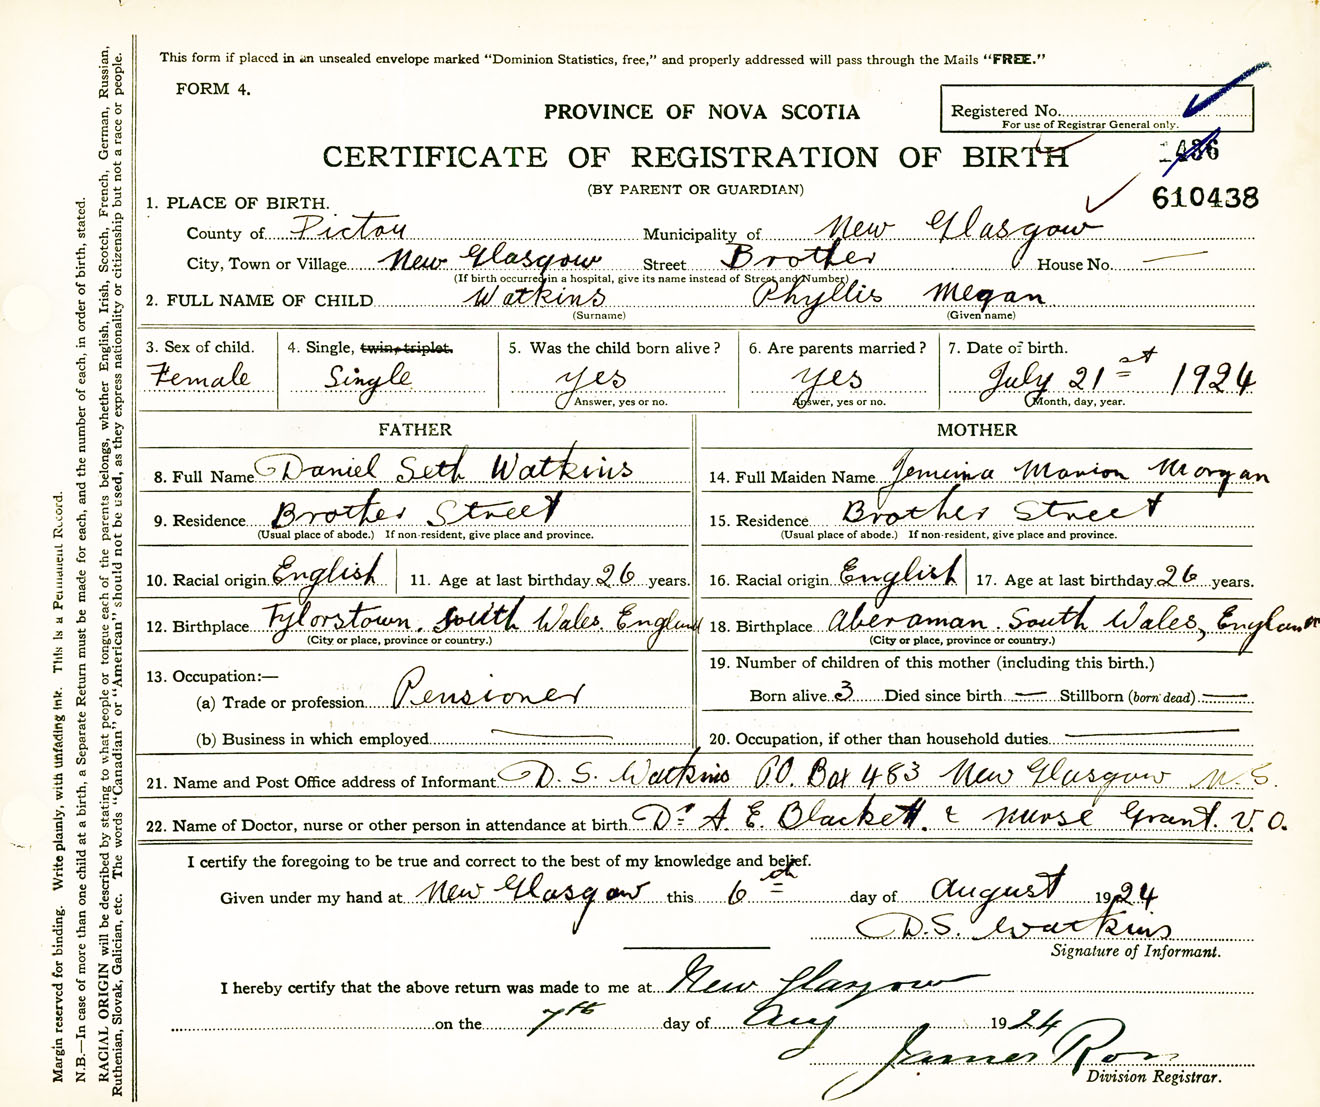 This form if placed in an unsealed envelope marked "Dominion Statistics, free," and properly addressed will pass through the Mails "FREE."
FORM 4.
PROVINCE OF NOVA SCOTIA
Registered No.
For use of Registrar General only.
CERTIFICATE OF REGISTRATION OF BIRTH
(BY PARENT OR GUARDIAN)
610438
1. PLACE OF BIRTH.
County of Pictou Municipality of New Glasgow
City, Town or Village New Glasgow Street Brother House No. —
(If birth occurred in a hospital, give its name instead of Street and Number)
2. FULL NAME OF CHILD Watkins Phyllis Megan
(Surname) (Given name)
3. Sex of child. 4. Single, twin, triplet. 5. Was the child born alive? 6. Are parents married? 7. Date of birth.
Female Single yes yes July 21st 1924
Answer, yes or no. Answer, yes or no. Month, day, year.
FATHER MOTHER
8. Full Name Daniel Seth Watkins 14. Full Maiden Name Jemima Marion Morgan
9. Residence Brother Street 15. Residence Brother Street
(Usual place of abode.) If non-resident, give place and province. (Usual place of abode.) If non-resident, give place and province.
10. Racial origin English 11. Age at last birthday 26 years. 16. Racial origin English 17. Age at last birthday 26 years.
12. Birthplace Tylorstown. South Wales. England 18. Birthplace Aberaman. South Wales, England
(City or place, province or country.) (City or place, province or country.)
19. Number of children of this mother (including this birth.)
13. Occupation:—
(a) Trade or profession Pensioner Born alive 3 Died since birth — Stillborn (born dead) —
(b) Business in which employed — 20. Occupation, if other than household duties —
21. Name and Post Office address of Informant D. S. Watkins P.O. Box 483 New Glasgow N.S.
22. Name of Doctor, nurse or other person in attendance at birth Dr A. E. Blackett. & Nurse Grant. V.O.
I certify the foregoing to be true and correct to the best of my knowledge and belief.
Given under my hand at New Glasgow this 6th day of August 1924
D.S. Watkins
Signature of Informant.
I hereby certify that the above return was made to me at New Glasgow
on the 7th day of Aug 1924
James
Division Registrar.
Margin reserved for binding. Write plainly, with unfading ink. This is a Permanent Record.
N.B.—In case of more than one child at a birth, a Separate Return must be made for each, and the number of each, in order of birth, stated.
RACIAL ORIGIN will be described by stating to what people or tongue each of the parents belongs, whether English, Irish, Scotch, French, German, Russian,
Ruthenian, Slovak, Galician, etc. The words "Canadian" or "American" should not be used, as they express nationality or citizenship but not a race or people.